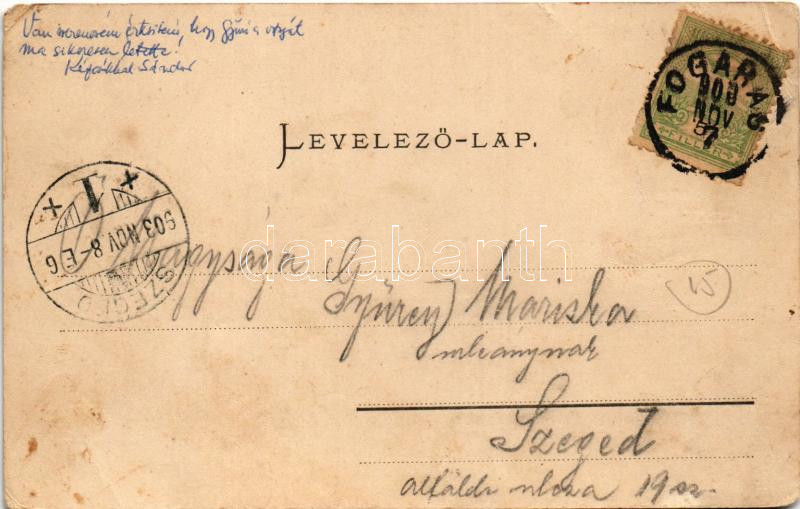 Van szerencsém értesíteni, hogy Gyuri a vizsgát
ma sikeresen letette!
Sándor
FOGARAS
903
NOV
7
FILLÉR
LEVELEZŐ-LAP.
1
903 NOV 8-E6
SZEGED
Nagysága
Mariska
Szeged
alföldi utcza 19 sz.
15
darabanth